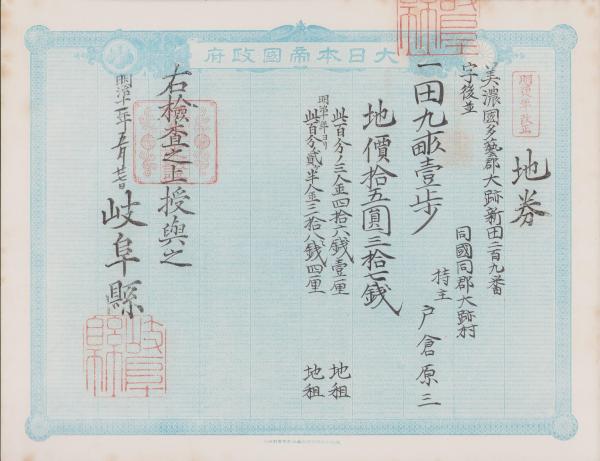 大日本帝國政府
地券
美濃國多藝郡大跡新田二百九番
字後並
同國同郡大跡村
持主 戸倉原三
一田九畝壹歩
地價拾五圓三拾七錢
此百分ノ三金四拾六錢壹厘 地租
明治十年ヨリ
此百分ノ貳半金三拾八錢四厘 地租
右檢査之上授與之
明治十一年五月廿七日
岐阜縣